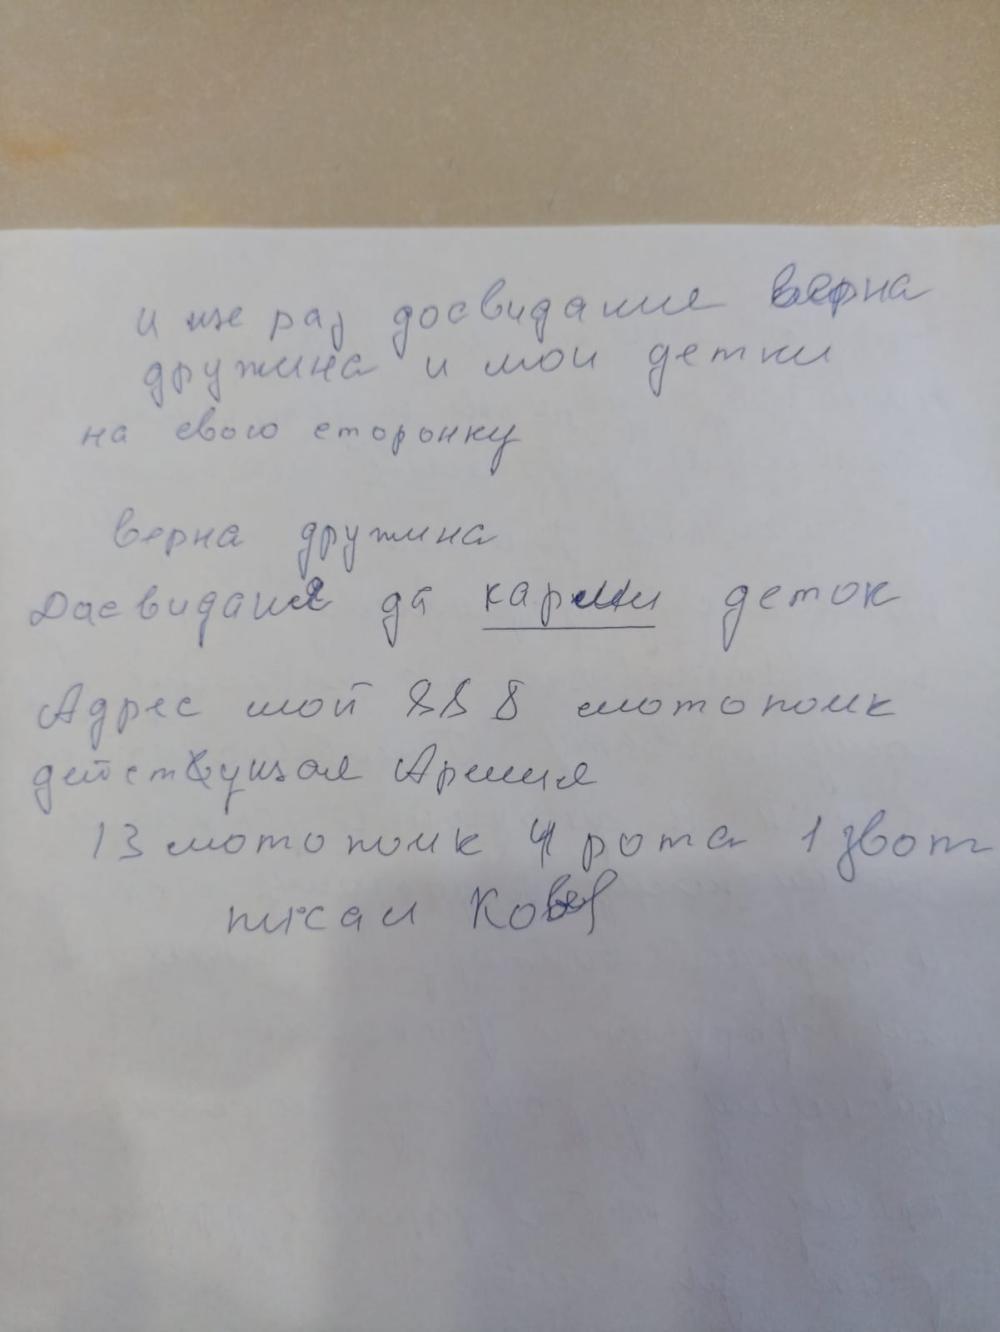 и ще раз досвидание верна
дружина и мои детки
на свою сторонку
верна дружина
Дасвидания да карми деток
Адрес мой 888 мотополк
действующая Армия
13 мотополк 4 рота 1 звот
писал